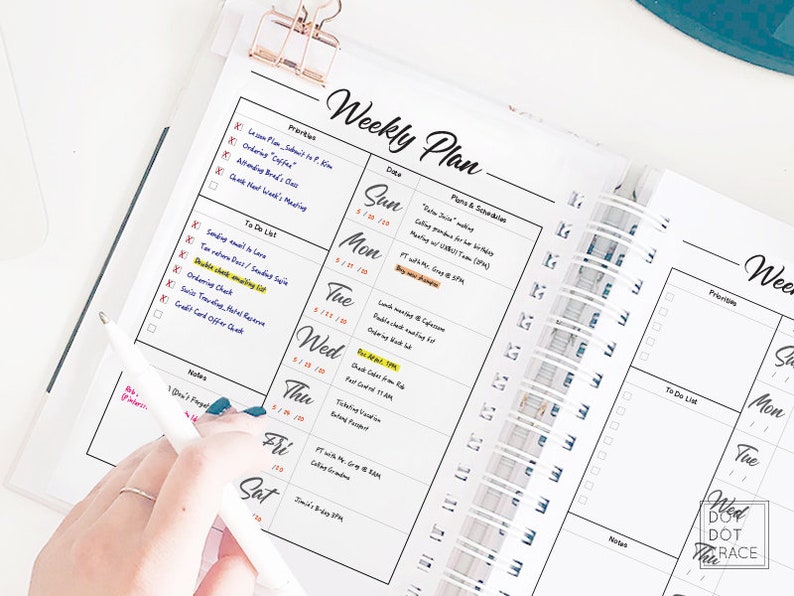 Weekly Plan
Priorities
X Lesson Plan_Submit to P. Kim
X Ordering "Coffee"
X Attending Bred's Class
X Check Next Week's Meeting
To Do List
X Sending email to Lara
X Tax return Docs / Sending Sujia
X Double check emailing list
X Ordering Check
X Swiss Traveling_Hotel Reserve
X Credit Card Offer Check
Notes
Rob's
(Don't Forget
(Pinteres
Date
Plans & Schedules
Sun
5 / 20 / 20
"Detox Juice" making
Calling grandma for her birthday
Meeting w/ UX&UI Team (2PM)
Mon
5 / 21 / 20
PT with Mr. Greg @ 5PM
Buy new shampoo
Tue
5 / 22 / 20
Lunch meeting @
Double check emailing list
Ordering black ink
Wed
5 / 23 / 20
Doc. Ad pt. 1PM
Check Codes from Rob
Pest Control 11AM
Thu
5 / 24 / 20
Ticketing Vacation
Extend Passport
Fri
/20
PT with Mr. Greg @ 8AM
Calling Grandma
Sat
/20
Jimie's B-day 8PM
Week
Priorities
To Do List
Notes
Su
Mon
/ /
Tue
/ /
Wed
/ /
Thu
/ /
DOT
DOT
GRACE